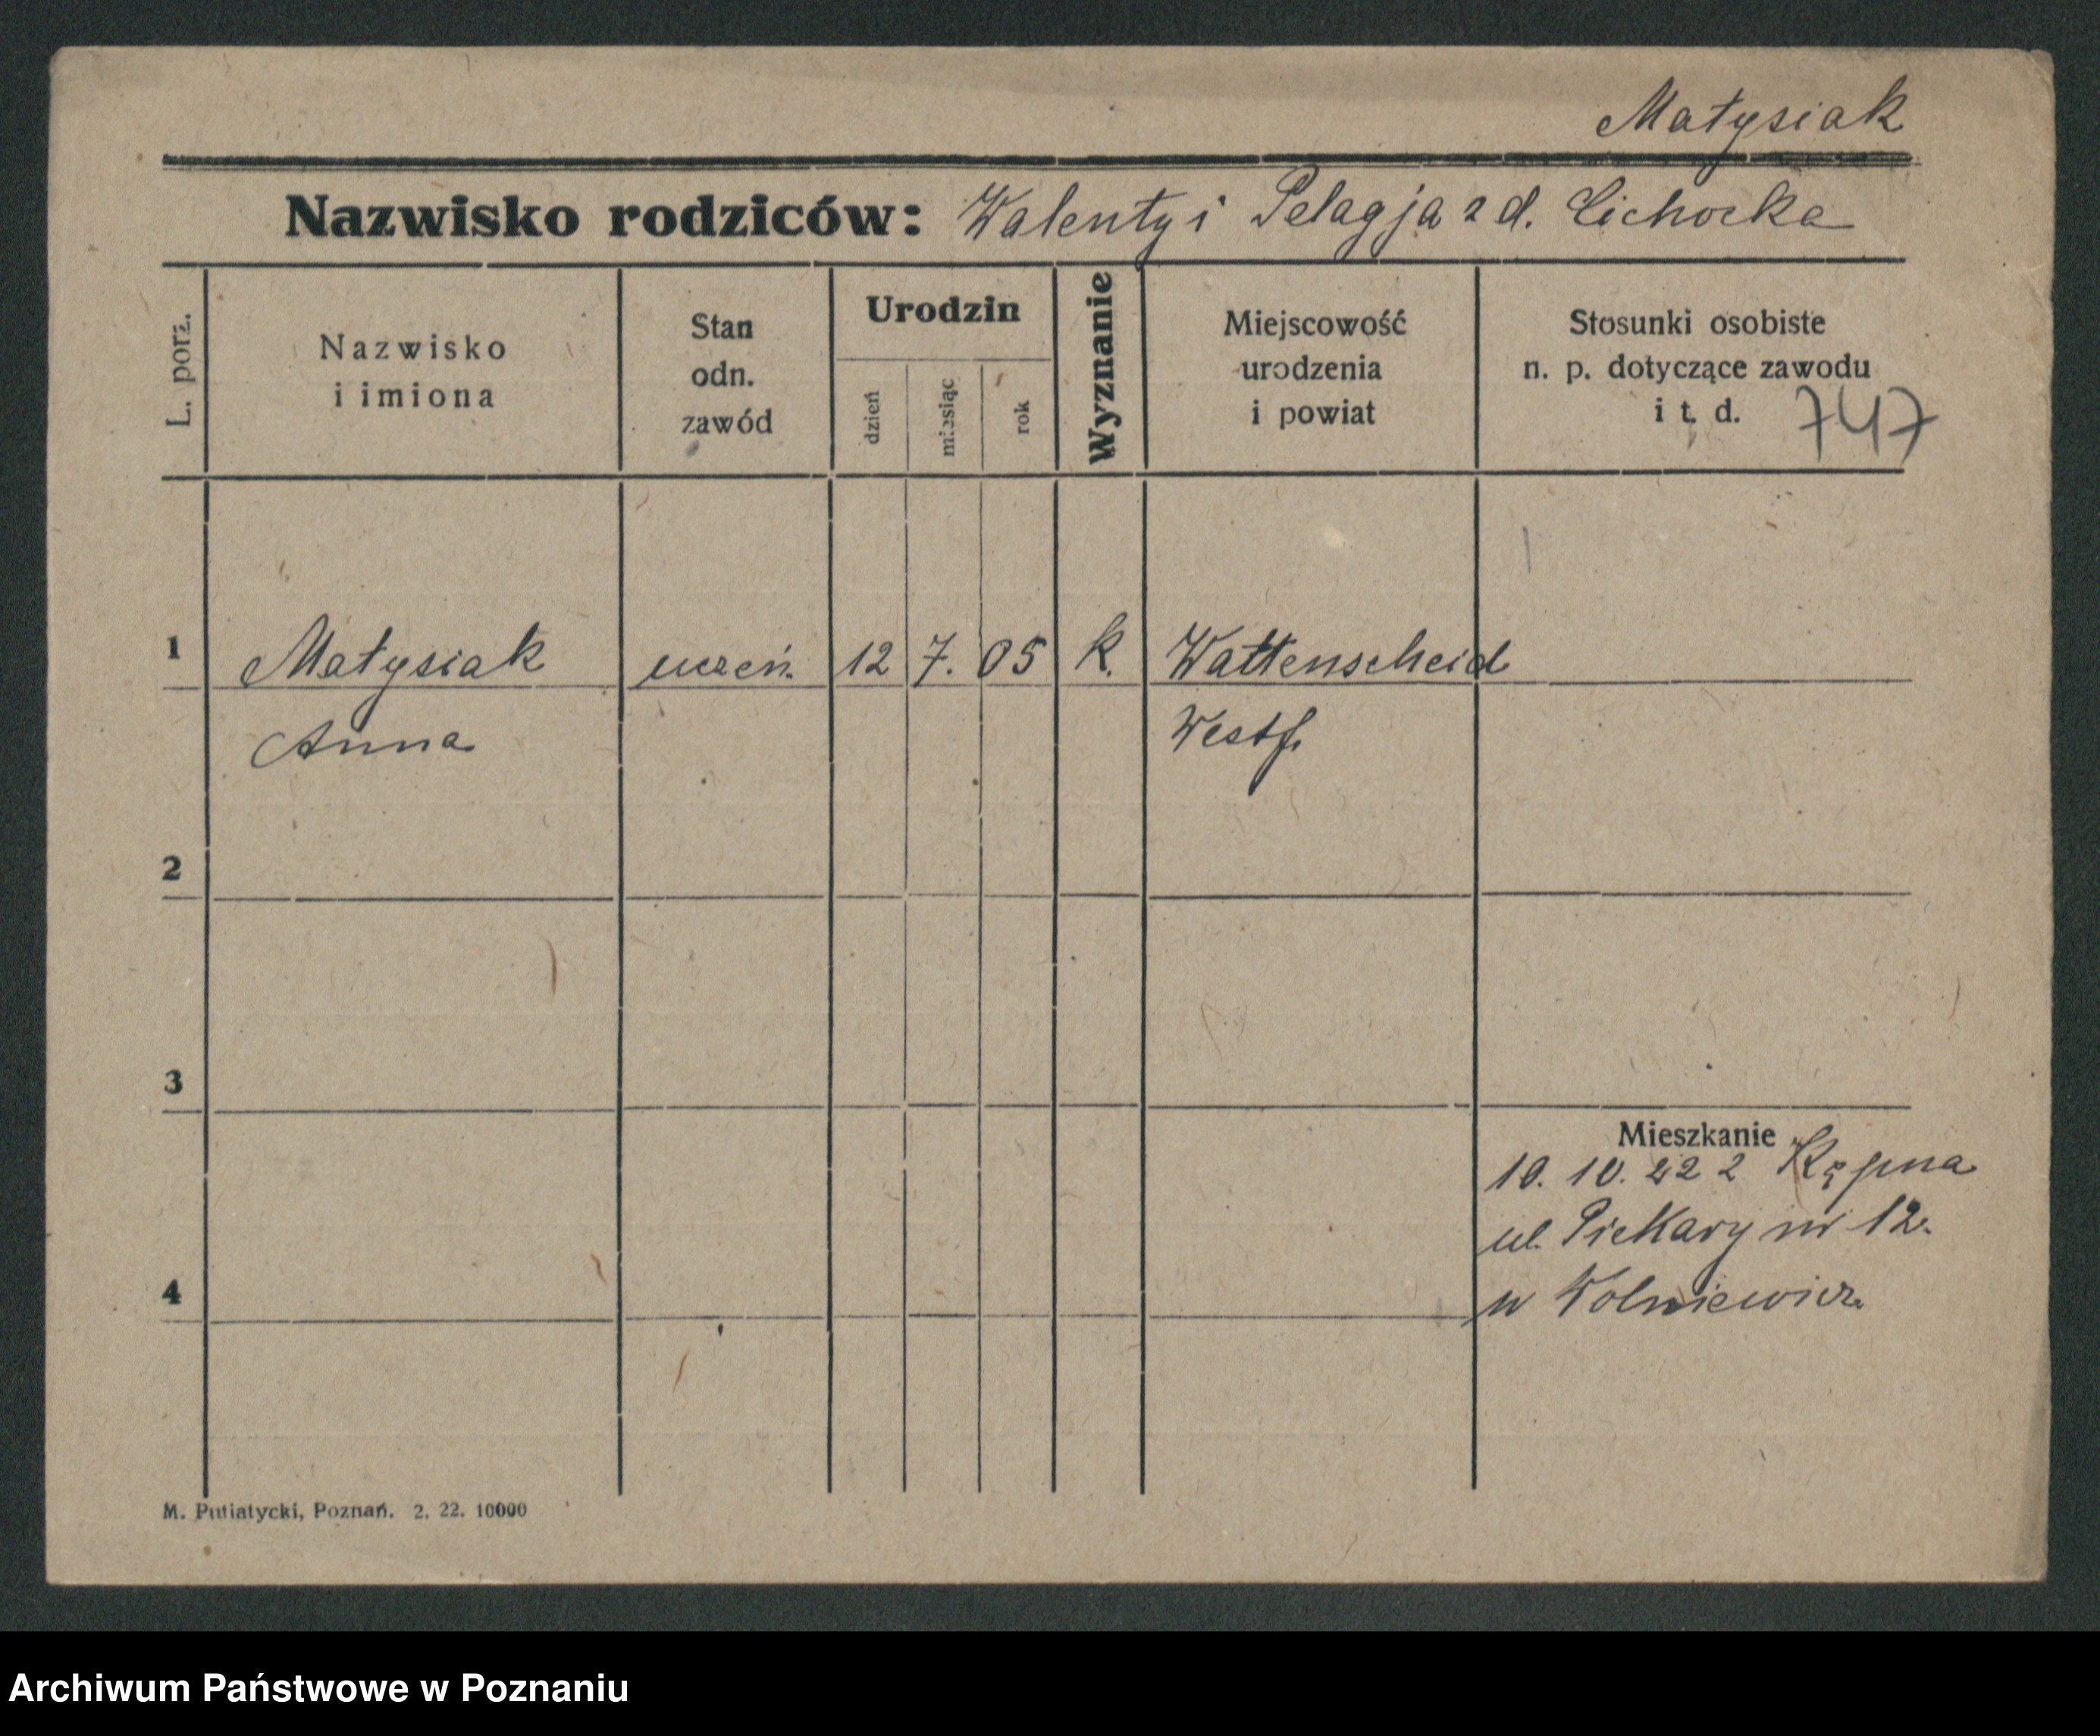 Matysiak
Nazwisko rodziców: Walenty i Pelagja z d. Cichocka
L. porz.
Nazwisko
i imiona
Stan
odn.
zawód
Urodzin
dzień
miesiąc
rok
Wyznanie
Miejscowość
urodzenia
i powiat
Stosunki osobiste
n. p. dotyczące zawodu
i t. d. 747
1 Matysiak uczeń. 12 7. 05 k. Wattenscheid
Anna Westf.
2
3
Mieszkanie
10. 10. 22 z Kępna
ul. Piekary nr 12.
4 u Wolniewicz
M. Putiatycki, Poznań. 2. 22. 10000
Archiwum Państwowe w Poznaniu